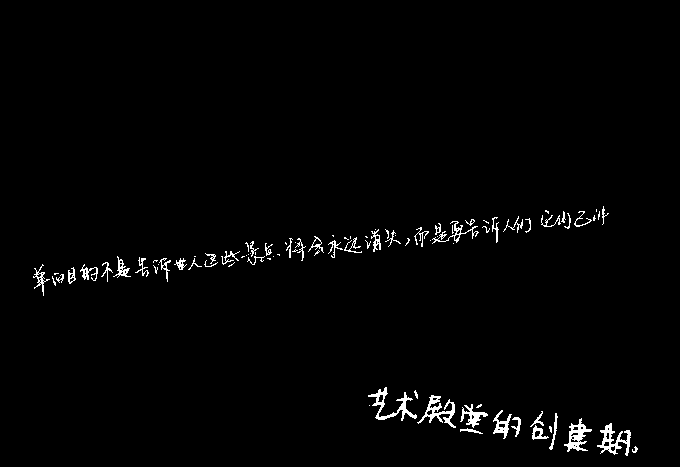 单的目的不是告诉世人这些景点将会永远消失,而是要告诉人们它们已
艺术殿堂的创建期。